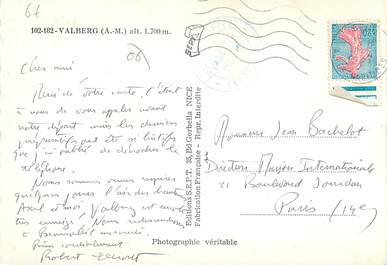 67
102-182 - VALBERG (A.-M.) alt. 1.700 m.
06
Cher ami
Merci de votre carte, c'était
à nous de vous appeler avant
notre départ mais les derniers
préparatifs ont été si hâtifs
que j'ai oublié de décrocher le
téléphone.
Nous sommes venus respirer
quelques jours l'air des hauts
Axel et moi. Valberg est
très enneigé. Nous redescendrons
à mercredi.
Bien cordialement
Robert
Editions S.E.P.T. 35, Bd Gorbella NICE
Fabrication Française - Repr. Interdite
Monsieur Jean Bachelot
Directeur Maison Internationale
21 Boulevard Jourdan
Paris (14e)
Photographie véritable